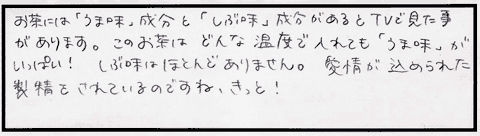 お茶には「うま味」成分と「しぶ味」成分があるとTVで見た事
があります。このお茶は どんな温度で入れても「うま味」が
いっぱい! しぶ味はほとんどありません。 愛情が込められた
製精をされているのですね、きっと!